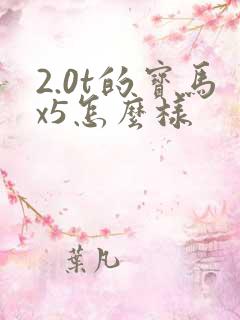 2.0t的寶馬
x5怎麼樣
葉凡